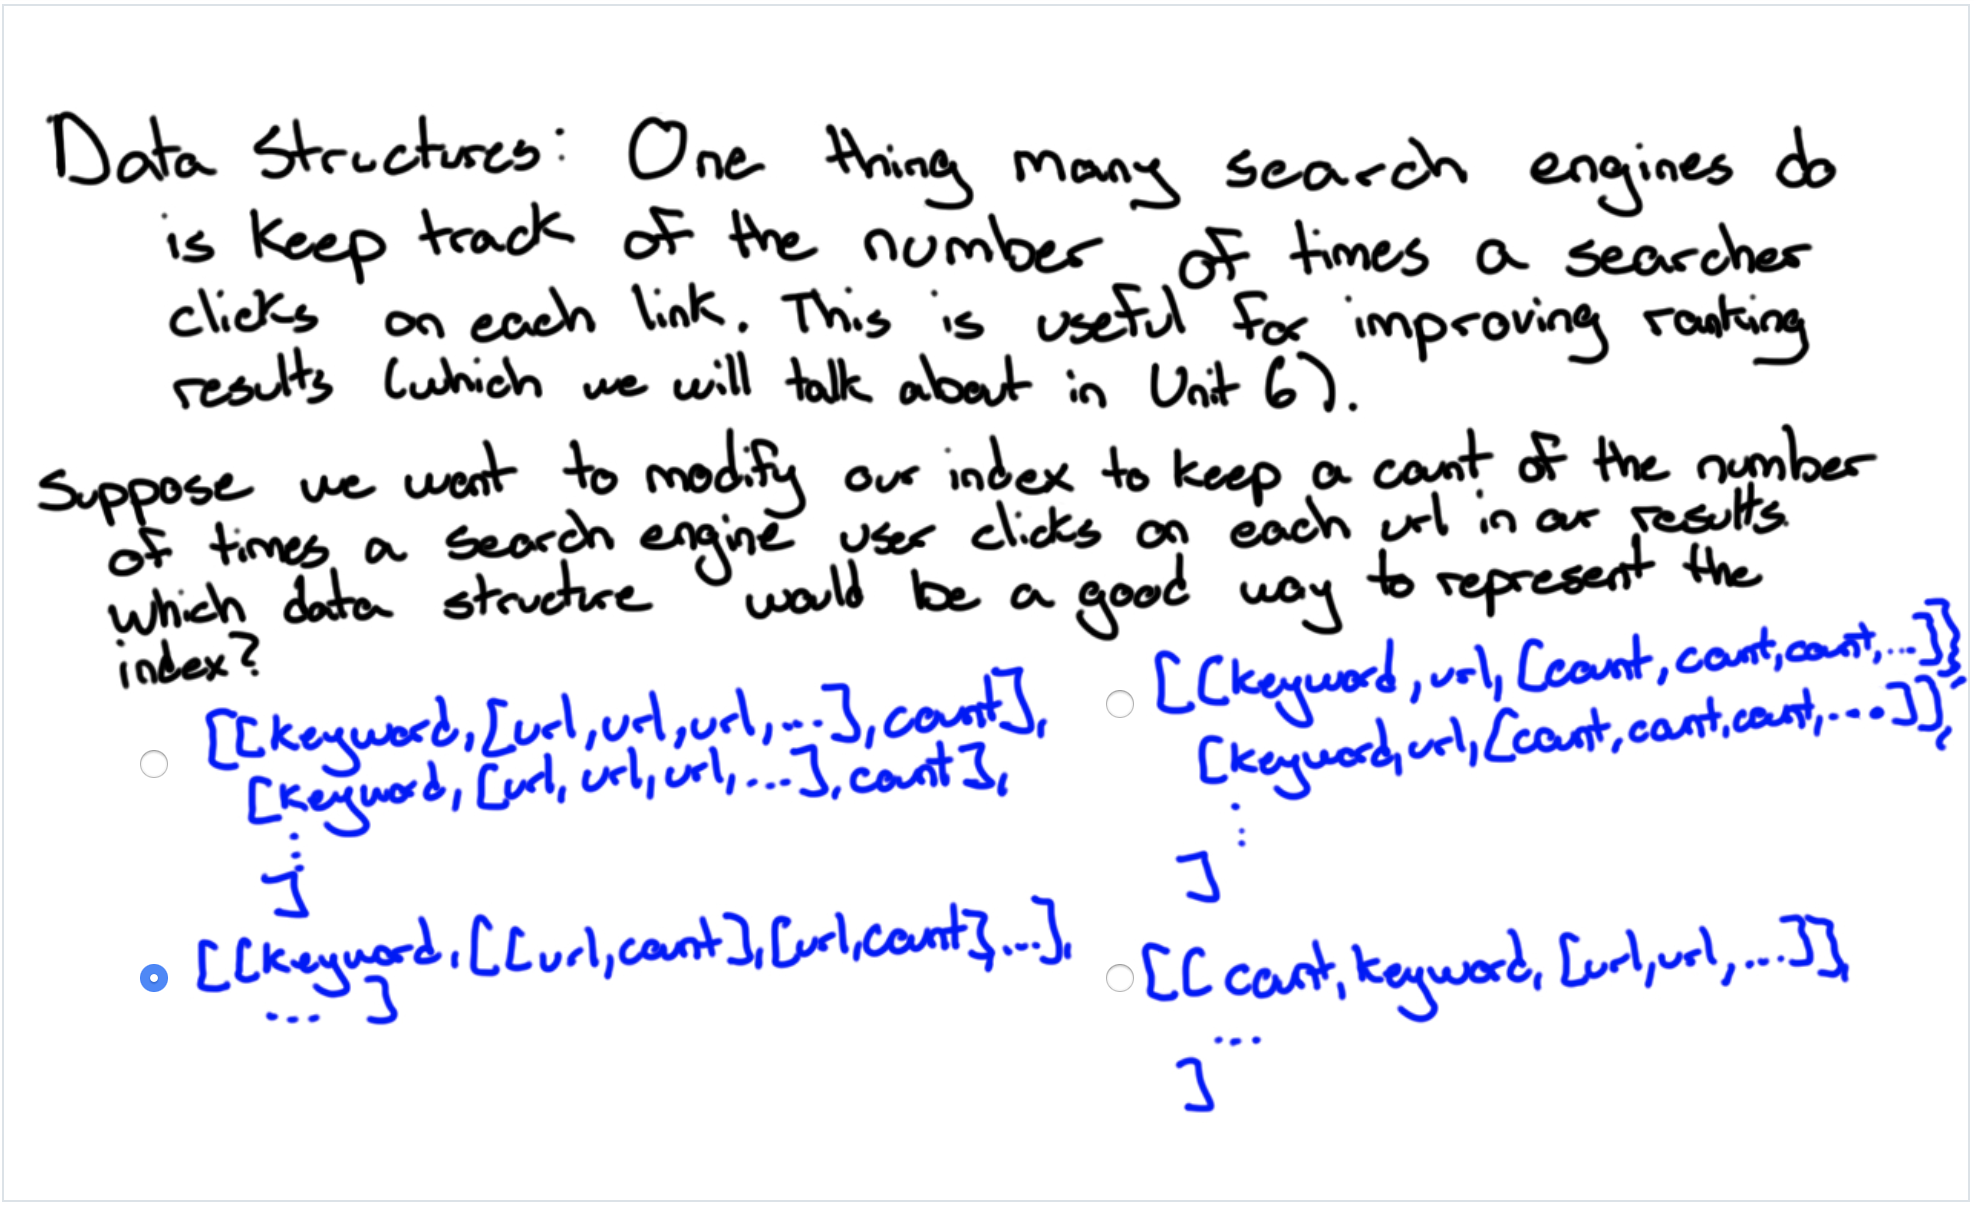 Data Structures: One thing many search engines do
is keep track of the number of times a searcher
clicks on each link. This is useful for improving ranking
results (which we will talk about in Unit 6).
Suppose we want to modify our index to keep a count of the number
of times a search engine user clicks on each url in our results.
Which data structure would be a good way to represent the
index?
[[keyword, [url, url, url, ...], count],
[keyword, [url, url, url, ...], count],
⋮
]
[[keyword, url, [count, count, count, ...]],
[keyword, url, [count, count, count, ...]],
⋮
]
[[keyword, [[url, count], [url, count], ...],
... ]
[[count, keyword, [url, url, ...]],
...
]